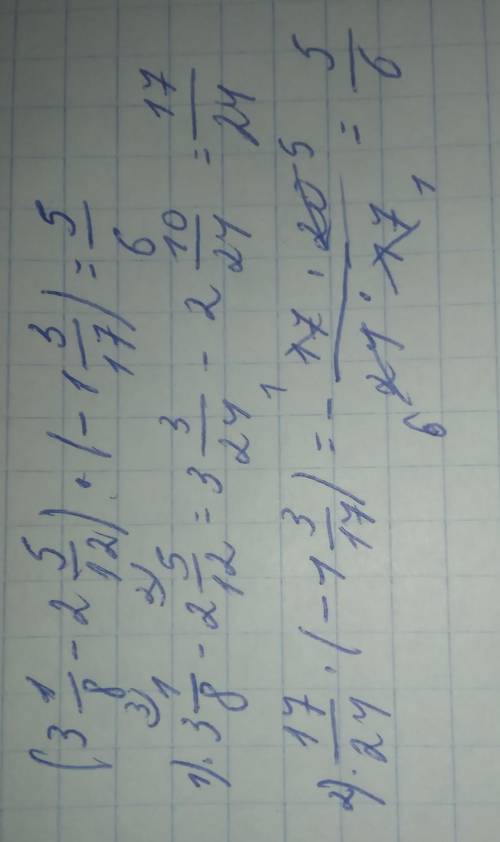 (3 1/8 - 2 5/12) · (-1 3/17) = 5/6
1). 3 1/8 ³⁾ - 2 5/12 ²⁾ = 3 3/24 - 2 10/24 = 17/24
2). 17/24 · (-1 3/17) = - 17 ¹ · 20 ⁵ / 24 ₆ · 17 ₁ = 5/6